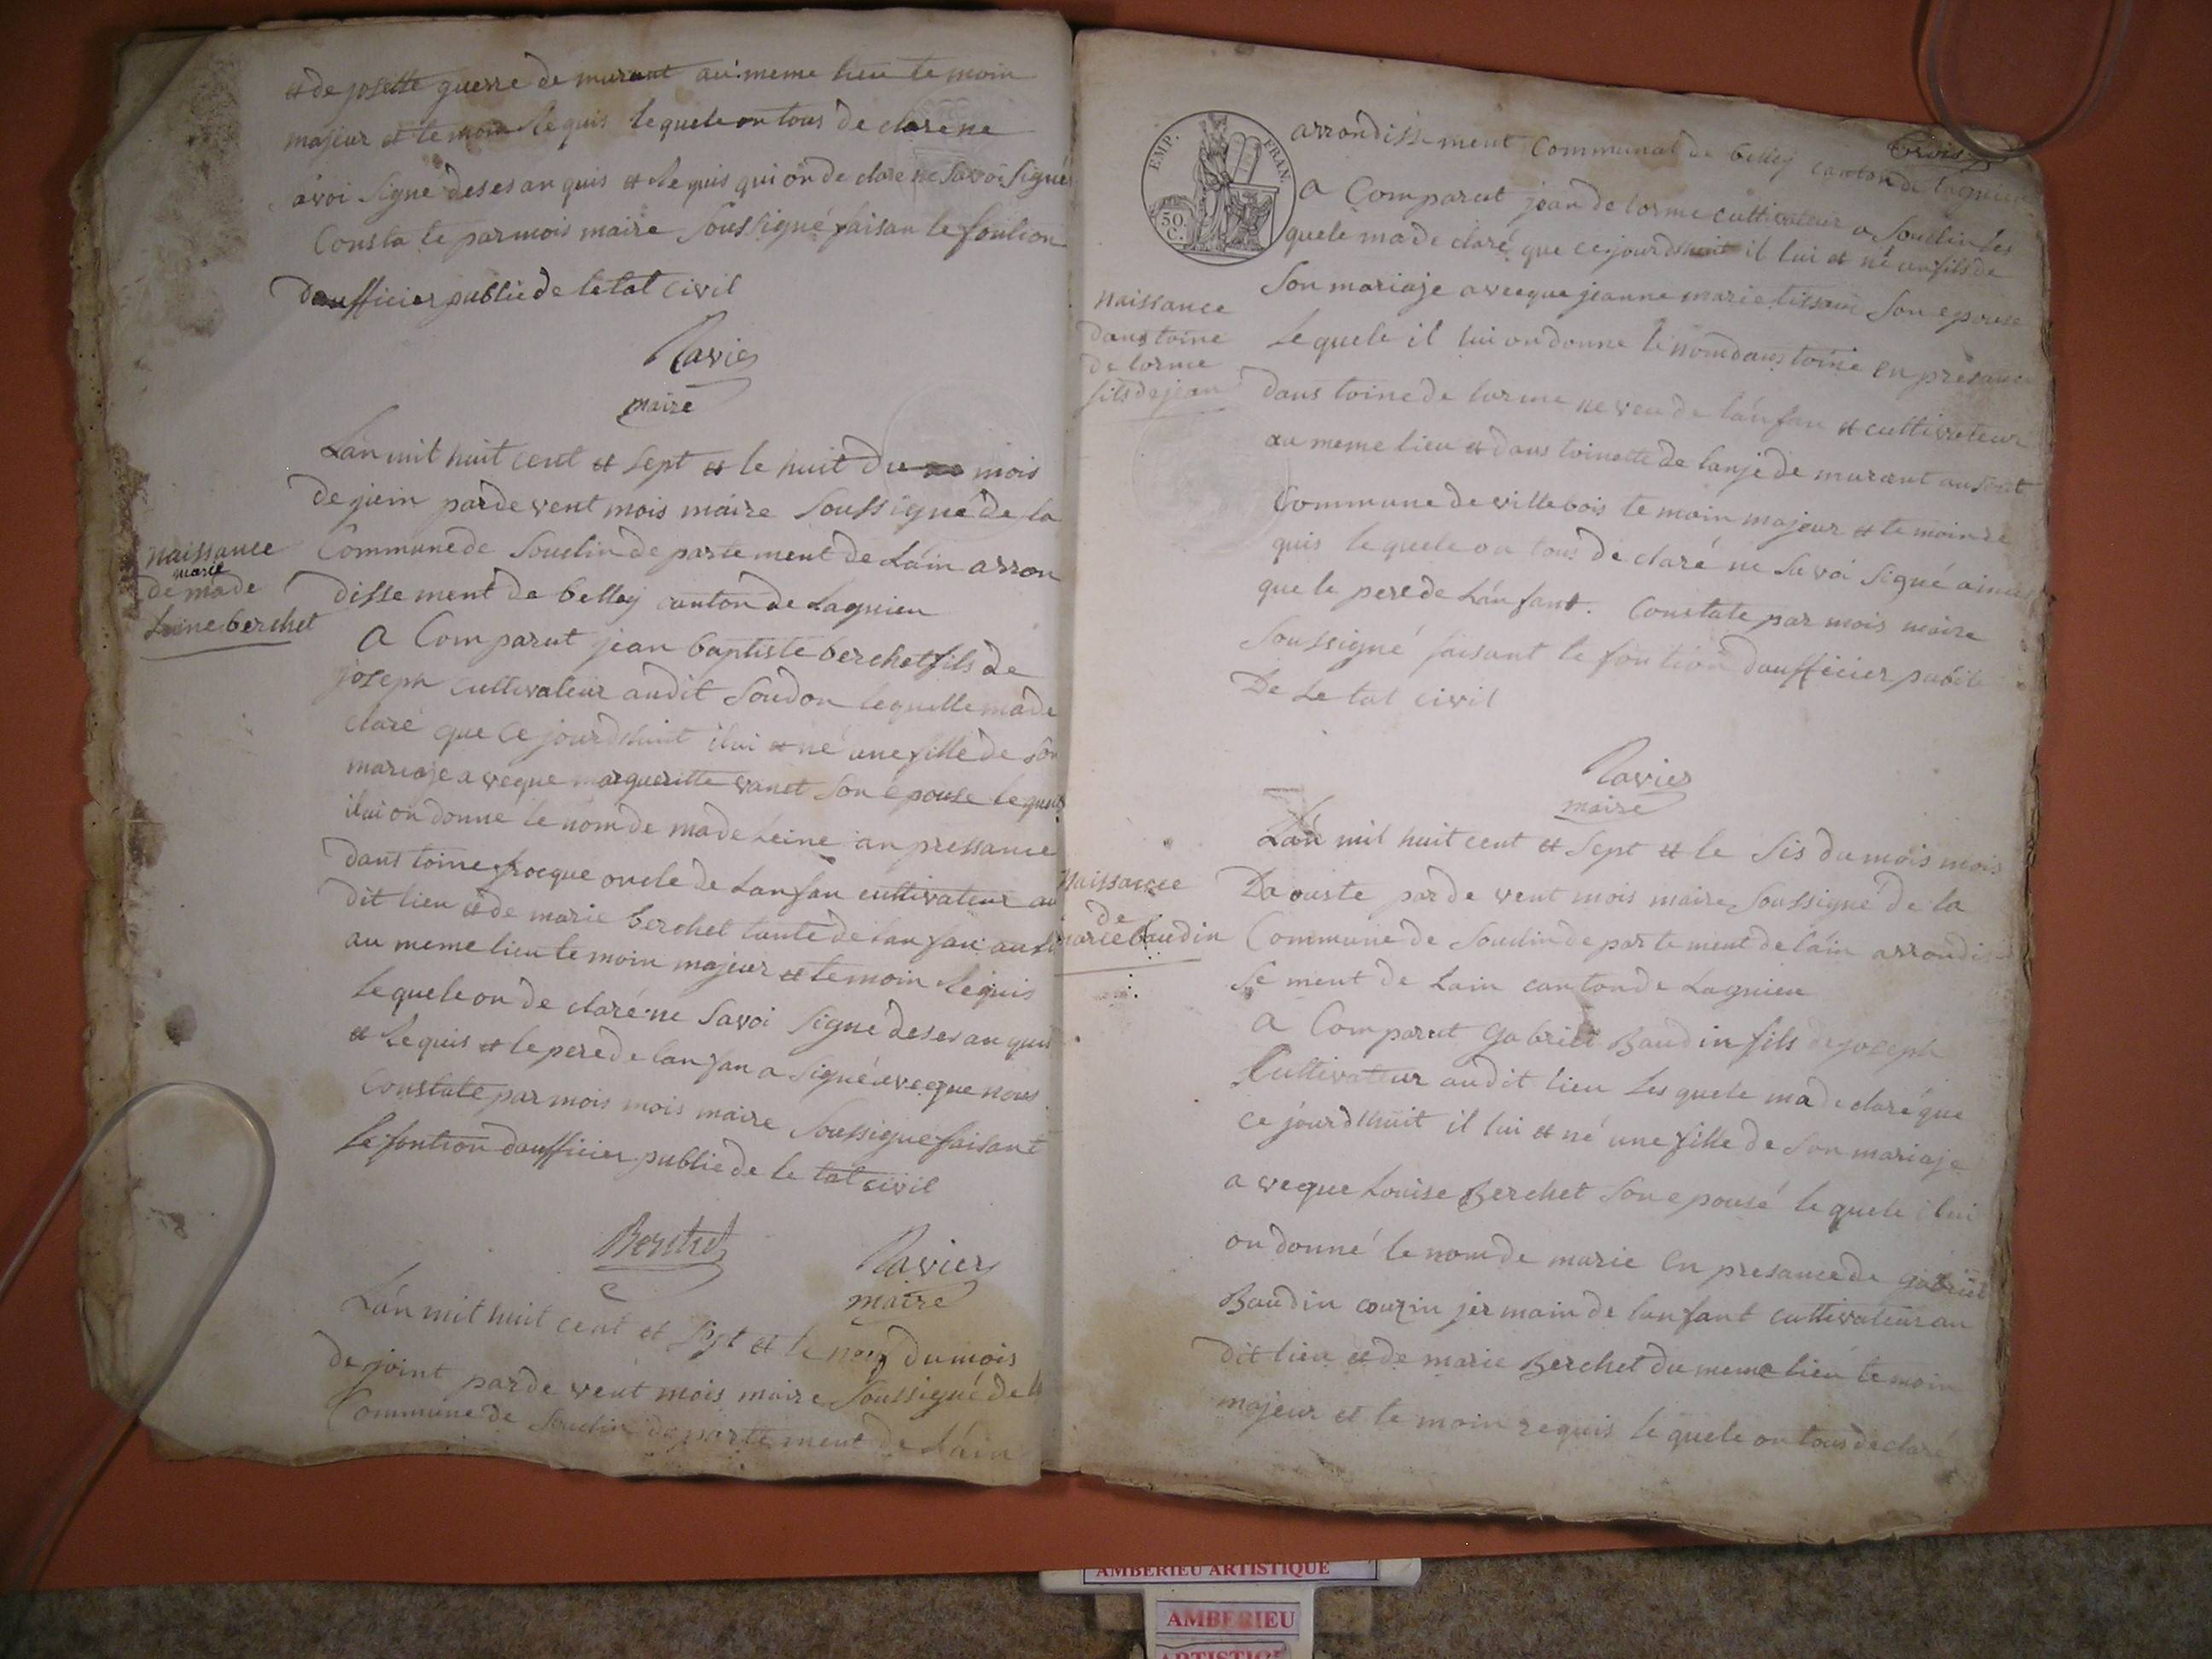 et de josette guerre de murant au meme lieu temoin
majeur et temoin requis lequele on tous declare ne
savoi signe deses an quis et requis qui on declare ne savoi signé
Consta te par mois maire soussigné faisan le fontion
daufficier publie de letat civil
Ravier
maire
Lan mil huit cent et sept et le huit du mois
de juin parde vent mois maire soussigné de la
Commune de Souclin de partement de Láin arron
dissement de belley canton de Lagnieu
naissance
marie
de made
Leine berchet
a Comparut jean baptiste berchet fils de
joseph cultivateur audit Soudon lequelle made
claré que ce jourdhuit ilui et né une fille de son
mariaje aveque margueritte vanet son epouse lequele
ilui on donne le nom de made Leine an pressance
dans toine frocque oncle de Lanfan cultivateur au
dit lieu et de marie berchet tante de lan fan
au meme lieu temoin majeur et temoin requis
lequele on de claré ne savoi signé deses an quis
et requis et le pere de lan fan a signé aveque nous
Constate par mois mois maire soussigne faisant
le fontion daufficier publie de le tat civil
Berchet
Ravier
maire
Lán mil huit cent et sept et le neuf du mois
de joint parde vent mois maire soussigné de la
Commune de Souclin departe ment de Láin
trois
EMP. FRAN.
50
C.
arrondisse ment Communal de belley canton de lagnieu
a Comparut jean de lorme cultivateur a Souclin les
quele made claré que ce jourdhuit il lui et né un fils de
son mariaje avecque jeanne marie tissout son epouse
naissance
dans toine
de lorme
fils de jean
lequele il lui on donne le nom dans toine en presance
dans toine de lorme neveu de lánfan et cultivateur
au meme lieu et dans toinette de lanje de murant
Commune de villebois temoin majeur et temoin re
quis lequele on tous de claré ne savoi signé
que le pere de Lánfant. Constate par mois maire
soussigné faisant le fontion daufficier publie
De Le tat civil
Ravier
maire
Lán mil huit cent et sept et le sis du mois mois
Daouste par de vent mois maire soussigné de la
naissance
de
marie baudin
Commune de Souclin de partement de láin arrondis
se ment de Lain canton de Lagnieu
a Comparut Gabriel Baudin fils de joseph
Cultivateur audit lieu Lesquele made claré que
ce jourdhuit il lui et né une fille de son mariaje
aveque Louise Berchet son epousé lequele ilui
on donné le nom de marie en presance de gabriel
Baudin couzin jermain de lanfant cultivateur au
dit lieu et de marie Berchet du meme lieu temoin
majeur et te moin requis lequele on tous declaré
AMBERIEU ARTISTIQUE
AMBERIEU
ARTISTIQUE